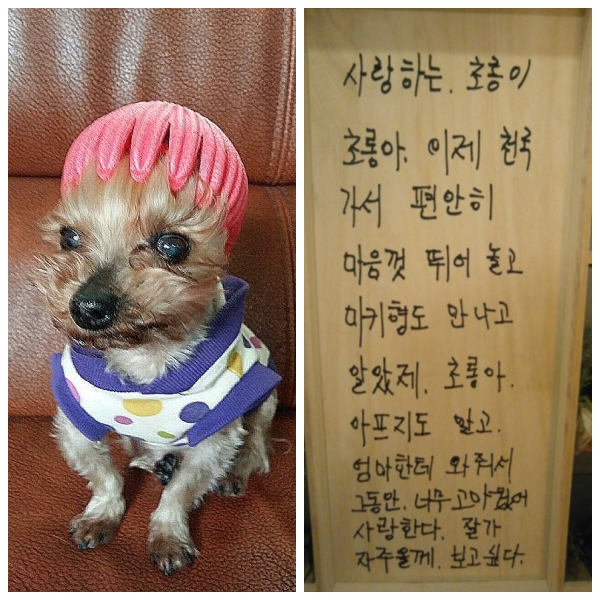 사랑하는. 초롱이
초롱아. 이제 천국
가서 편안히
마음껏 뛰어 놀고
마키형도 만나고
알았제. 초롱아.
아프지도 말고.
엄마한테 와줘서
그동안. 너무 고마웠어
사랑한다. 잘가
자주올께. 보고싶다.